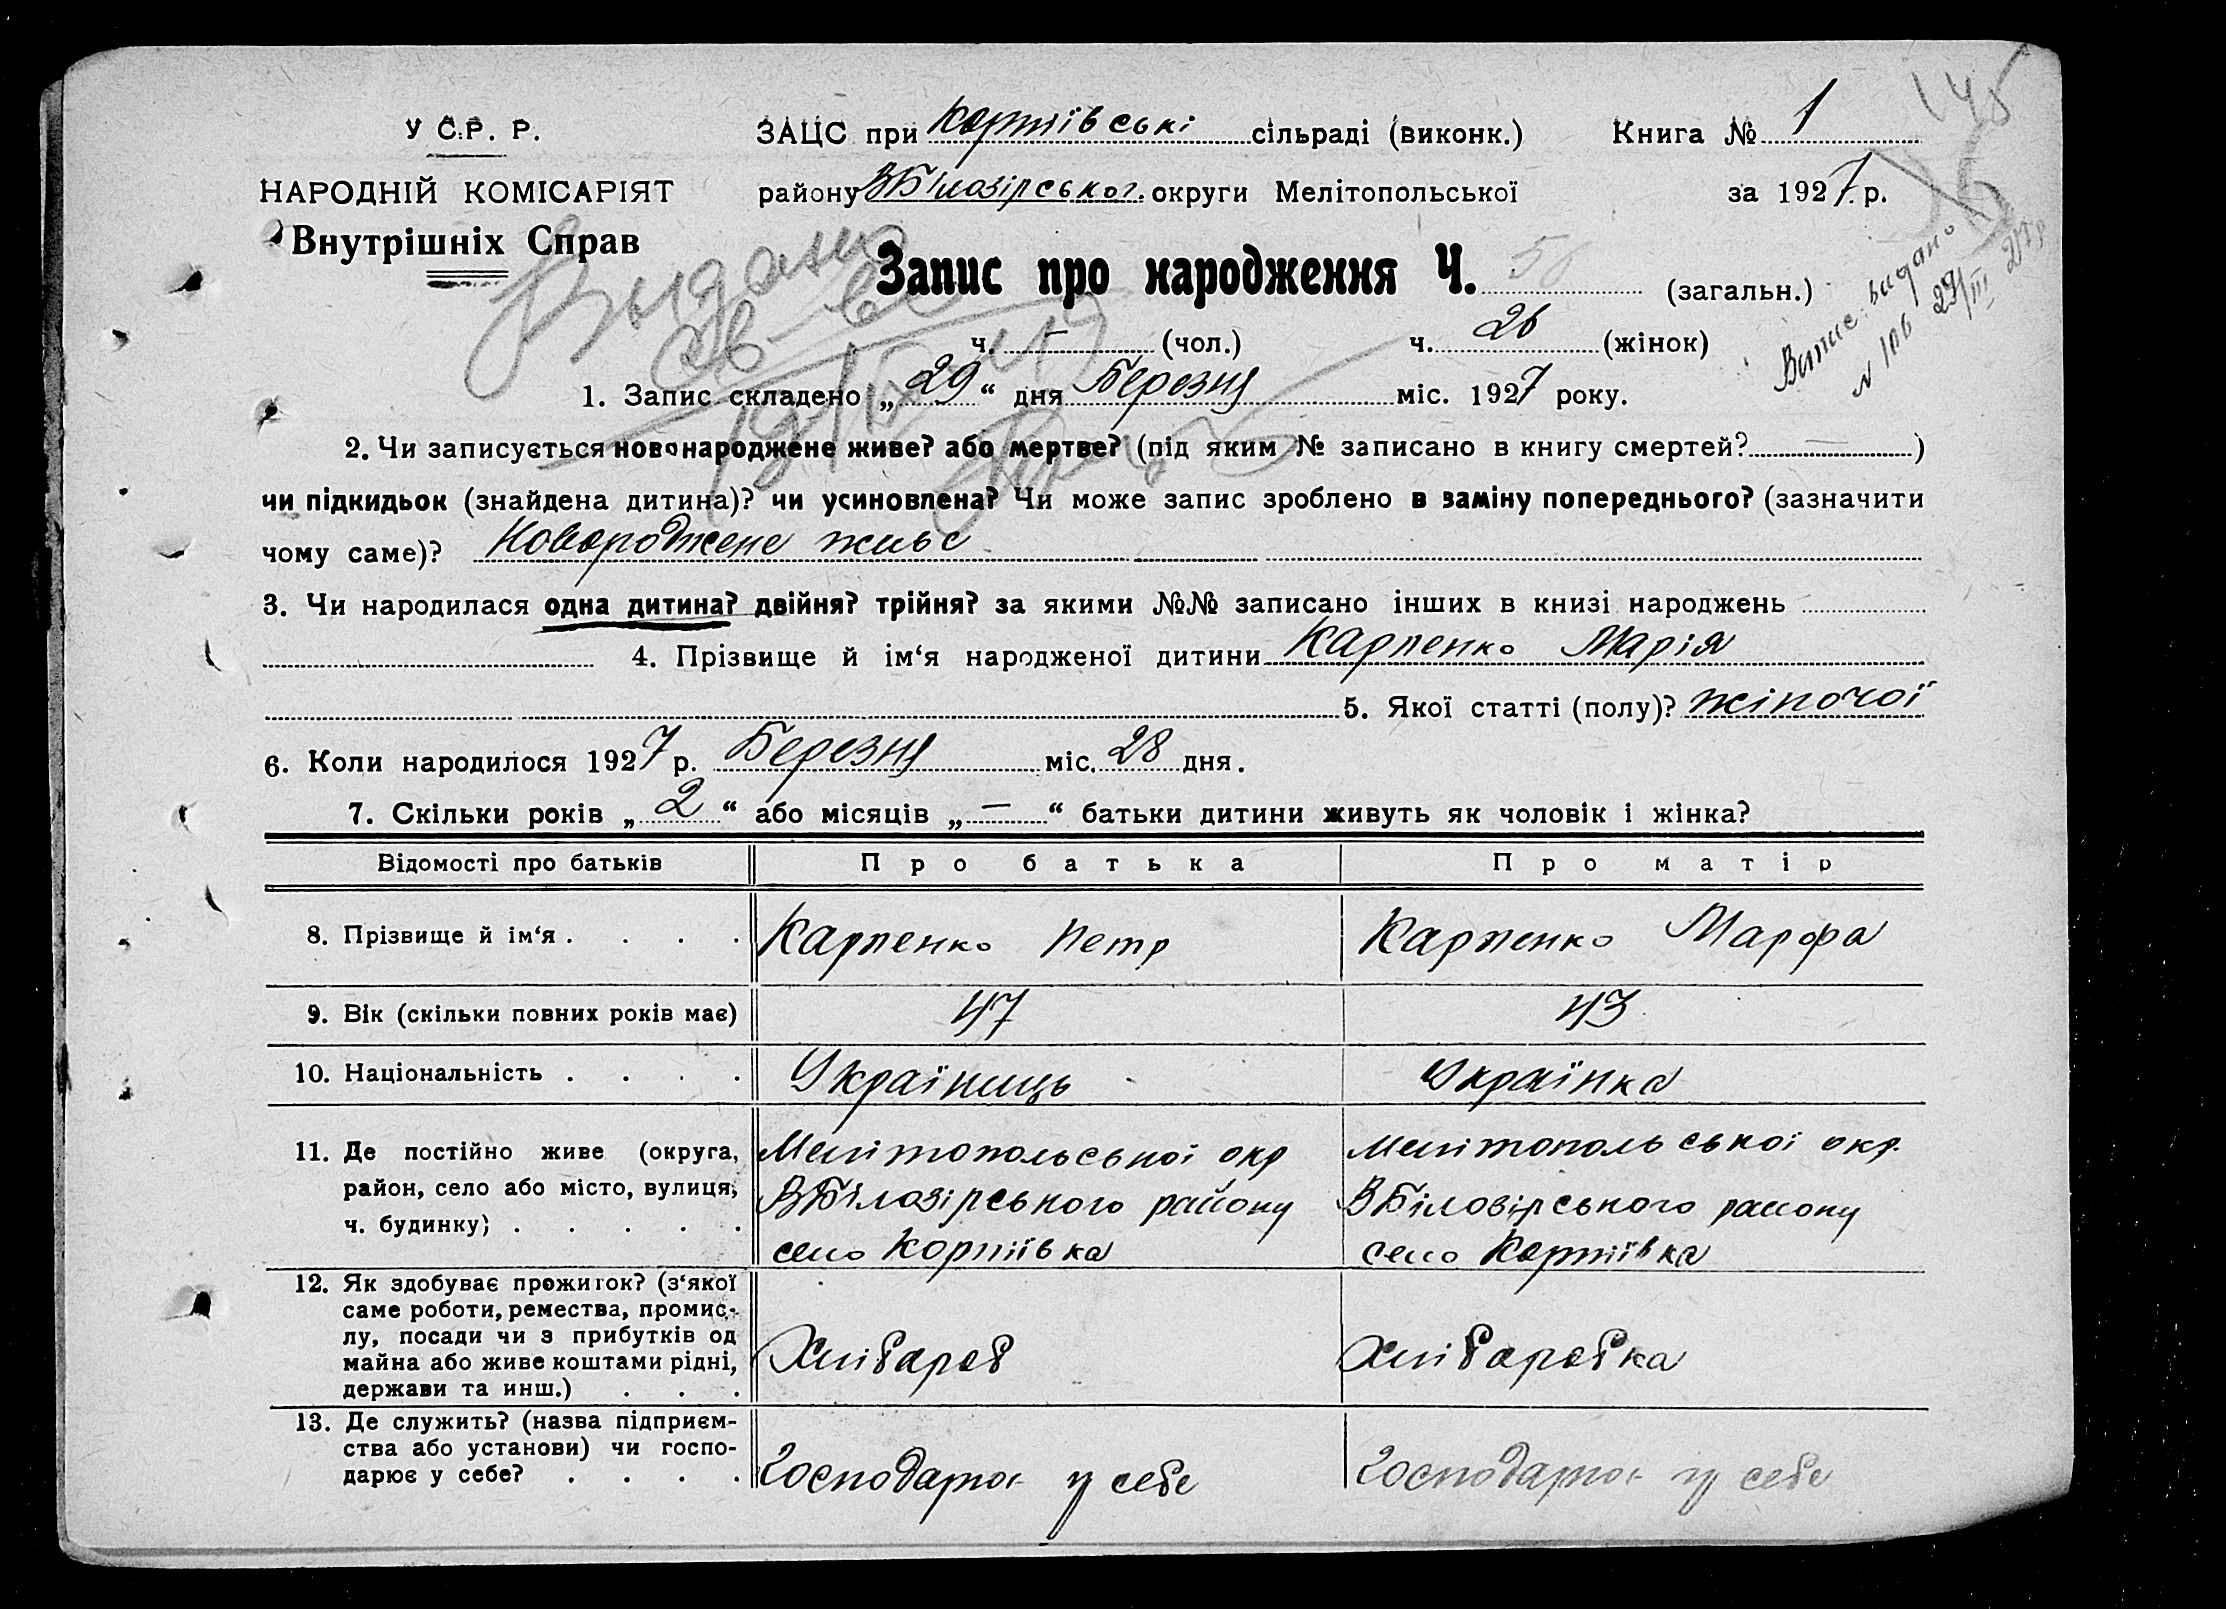 У С.Р. Р.
ЗАЦС при Картіівські сільраді (виконк.) Книга № 1
НАРОДНІЙ КОМІСАРІЯТ
району ВБілозірськог. округи Мелітопольської за 1927 р.
Внутрішніх Справ
Запис про народження Ч. 56 (загальн.)
ч. — (чол.) ч. 26 (жінок)
Выдано
Випис. видано
N 106 29/III 27р
1. Запис складено „29“ дня Березня міс. 1927 року.
2. Чи записується новонароджене живе? або мертве? (під яким № записано в книгу смертей? — )
чи підкидьок (знайдена дитина)? чи усиновлена? Чи може запис зроблено в заміну попереднього? (зазначити
чому саме)? Новороджене живе
3. Чи народилася одна дитина? двійня? трійня? за якими №№ записано інших в книзі народжень
4. Прізвище й ім‘я народженої дитини Карпенко Марія
5. Якої статті (полу)? жіночої
6. Коли народилося 1927 р. Березня міс. 28 дня.
7. Скільки років „2“ або місяців „—“ батьки дитини живуть як чоловік і жінка?
Відомості про батьків Про батька Про матір
8. Прізвище й ім‘я . . . . Карпенко Петр Карпенко Марфа
9. Вік (скільки повних років має) 47 43
10. Національність . . . . Українць Українка
11. Де постійно живе (округа, Мелітопольської окр Мелітопольської окр.
район, село або місто, вулиця, ВБілозірського району ВБілозірського району
ч. будинку) . . . . . село Картіівка село Картіівка
12. Як здобуває прожиток? (з‘якої
саме роботи, ремества, промис-
лу, посади чи з прибутків од
майна або живе коштами рідні, Хлібароб Хлібаробка
держави та инш.) . . .
13. Де служить? (назва підприєм-
ства або установи) чи госпо-
дарює у себе? . . . . Господарює у себе Господарює у себе